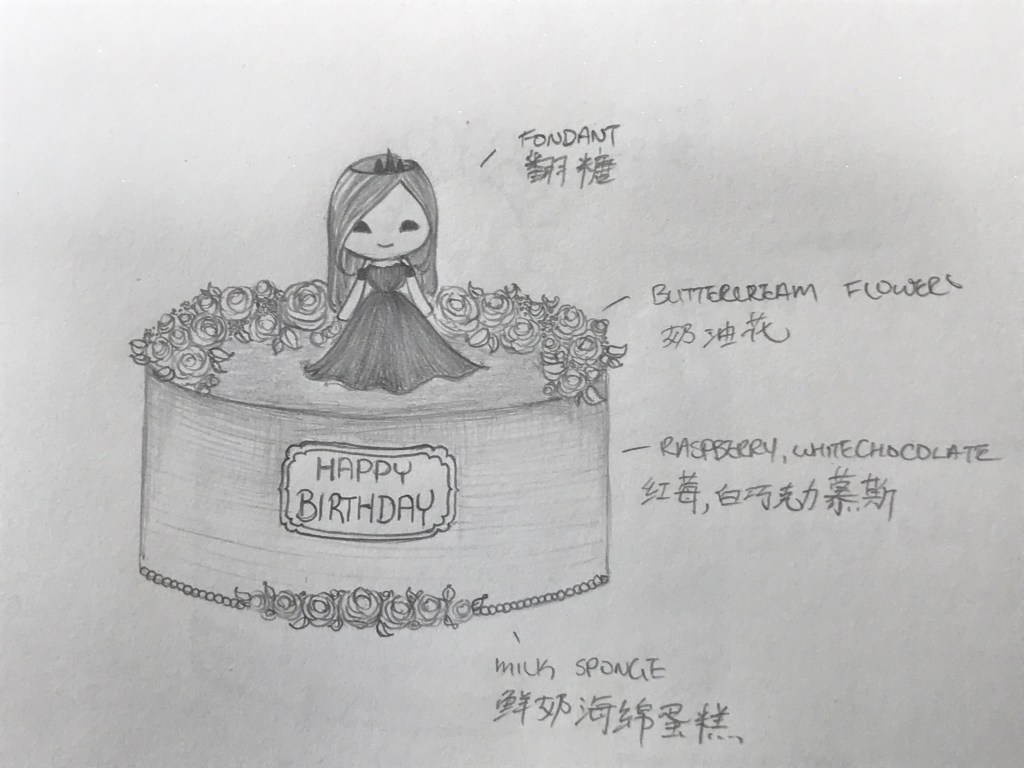 FONDANT
翻糖
BUTTERCREAM FLOWERS
奶油花
RASPBERRY, WHITECHOCOLATE
红莓,白巧克力慕斯
HAPPY
BIRTHDAY
MILK SPONGE
鲜奶海绵蛋糕